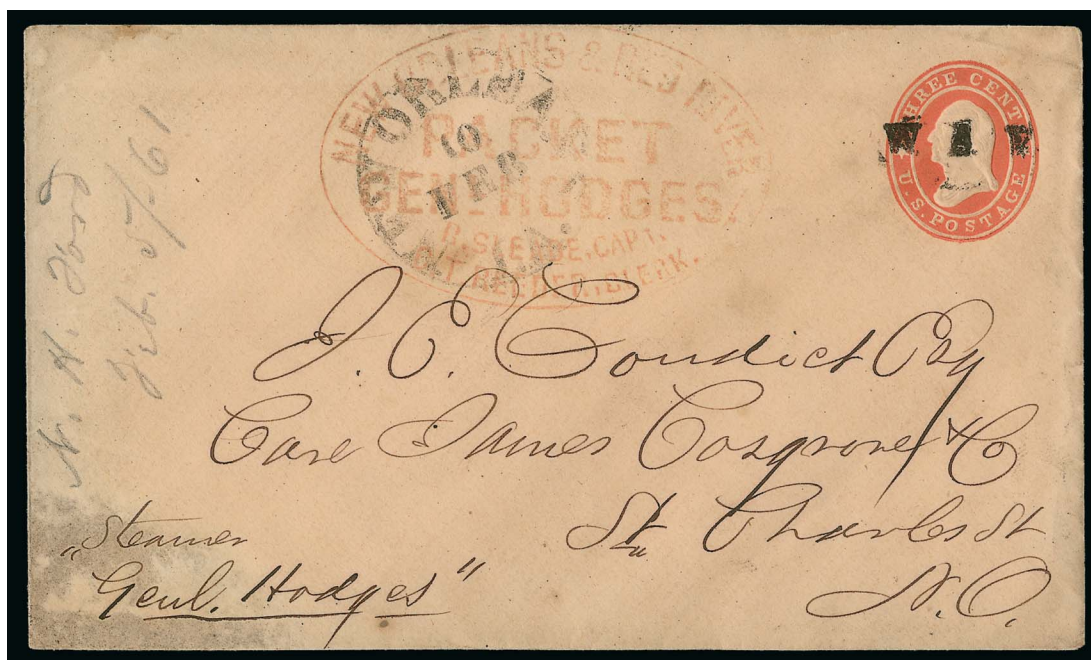 NEW ORLEANS & RED RIVER
PACKET
GENL. HODGES.
CAPT.
CLERK.
NEW ORLEANS
10
FEB
LA.
THREE CENTS
U.S. POSTAGE
WAY
J. C. Condict Esq
Care James Cosgrove & Co
St. Charles St
N.O.
"Steamer
Genl. Hodges"
N. H.
Feb. 5/61